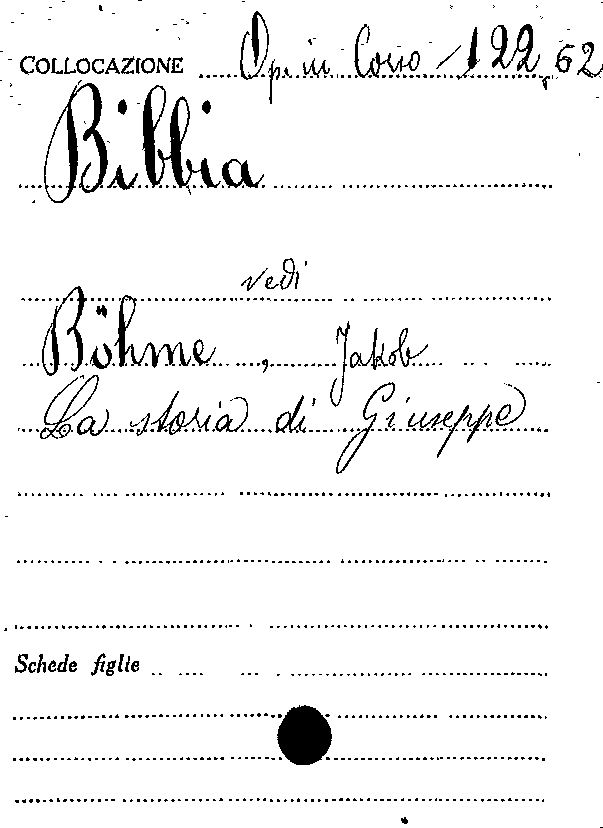 COLLOCAZIONE Op. in Corso 122, 62
Bibbia
vedi
Böhme, Jakob
La storia di Giuseppe
Schede figlie